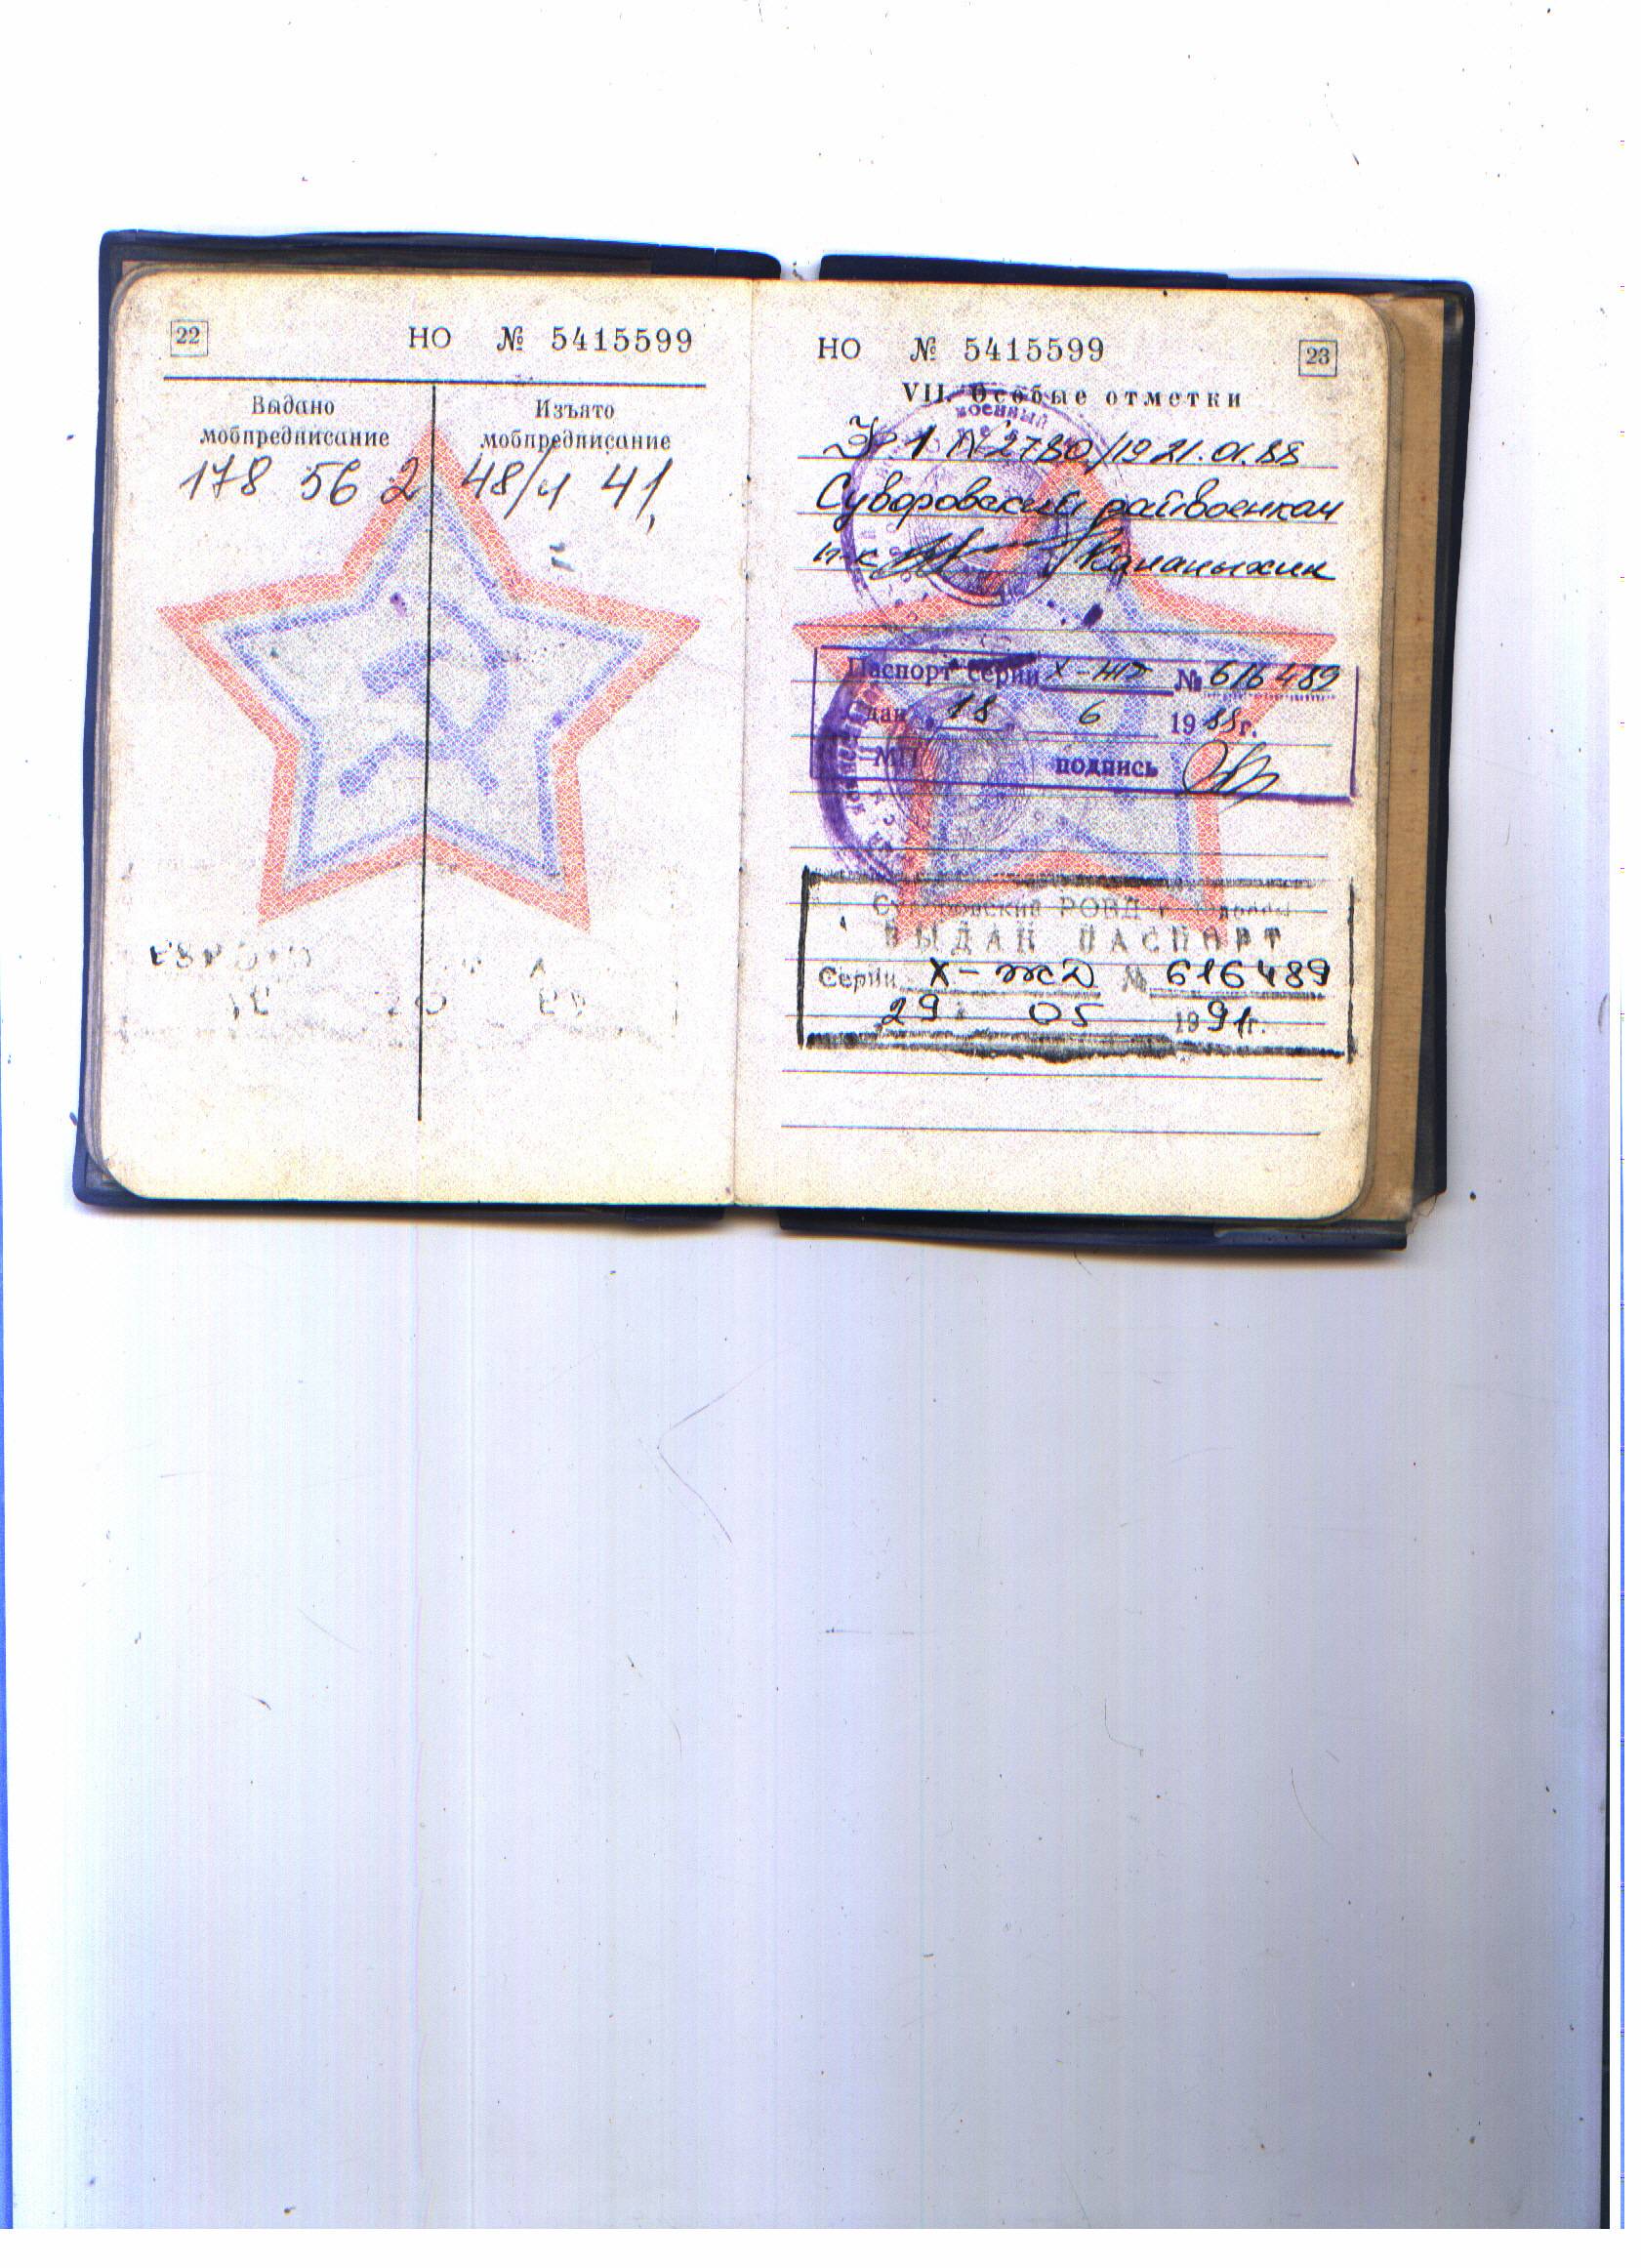 22
НО № 5415599
Выдано мобпредписание
Изъято мобпредписание
178 56 2
48/ 41
НО № 5415599
23
VII. Особые отметки
1 N 2780/19 21.01.88
Суворовский райвоенком
п-к
военный
Паспорт серии X-ЖД № 616489
дан 18 6 1988г.
МП подпись
РОВД
ВЫДАН ПАСПОРТ
Серии X-ЖД № 616489
29 05 1991г.